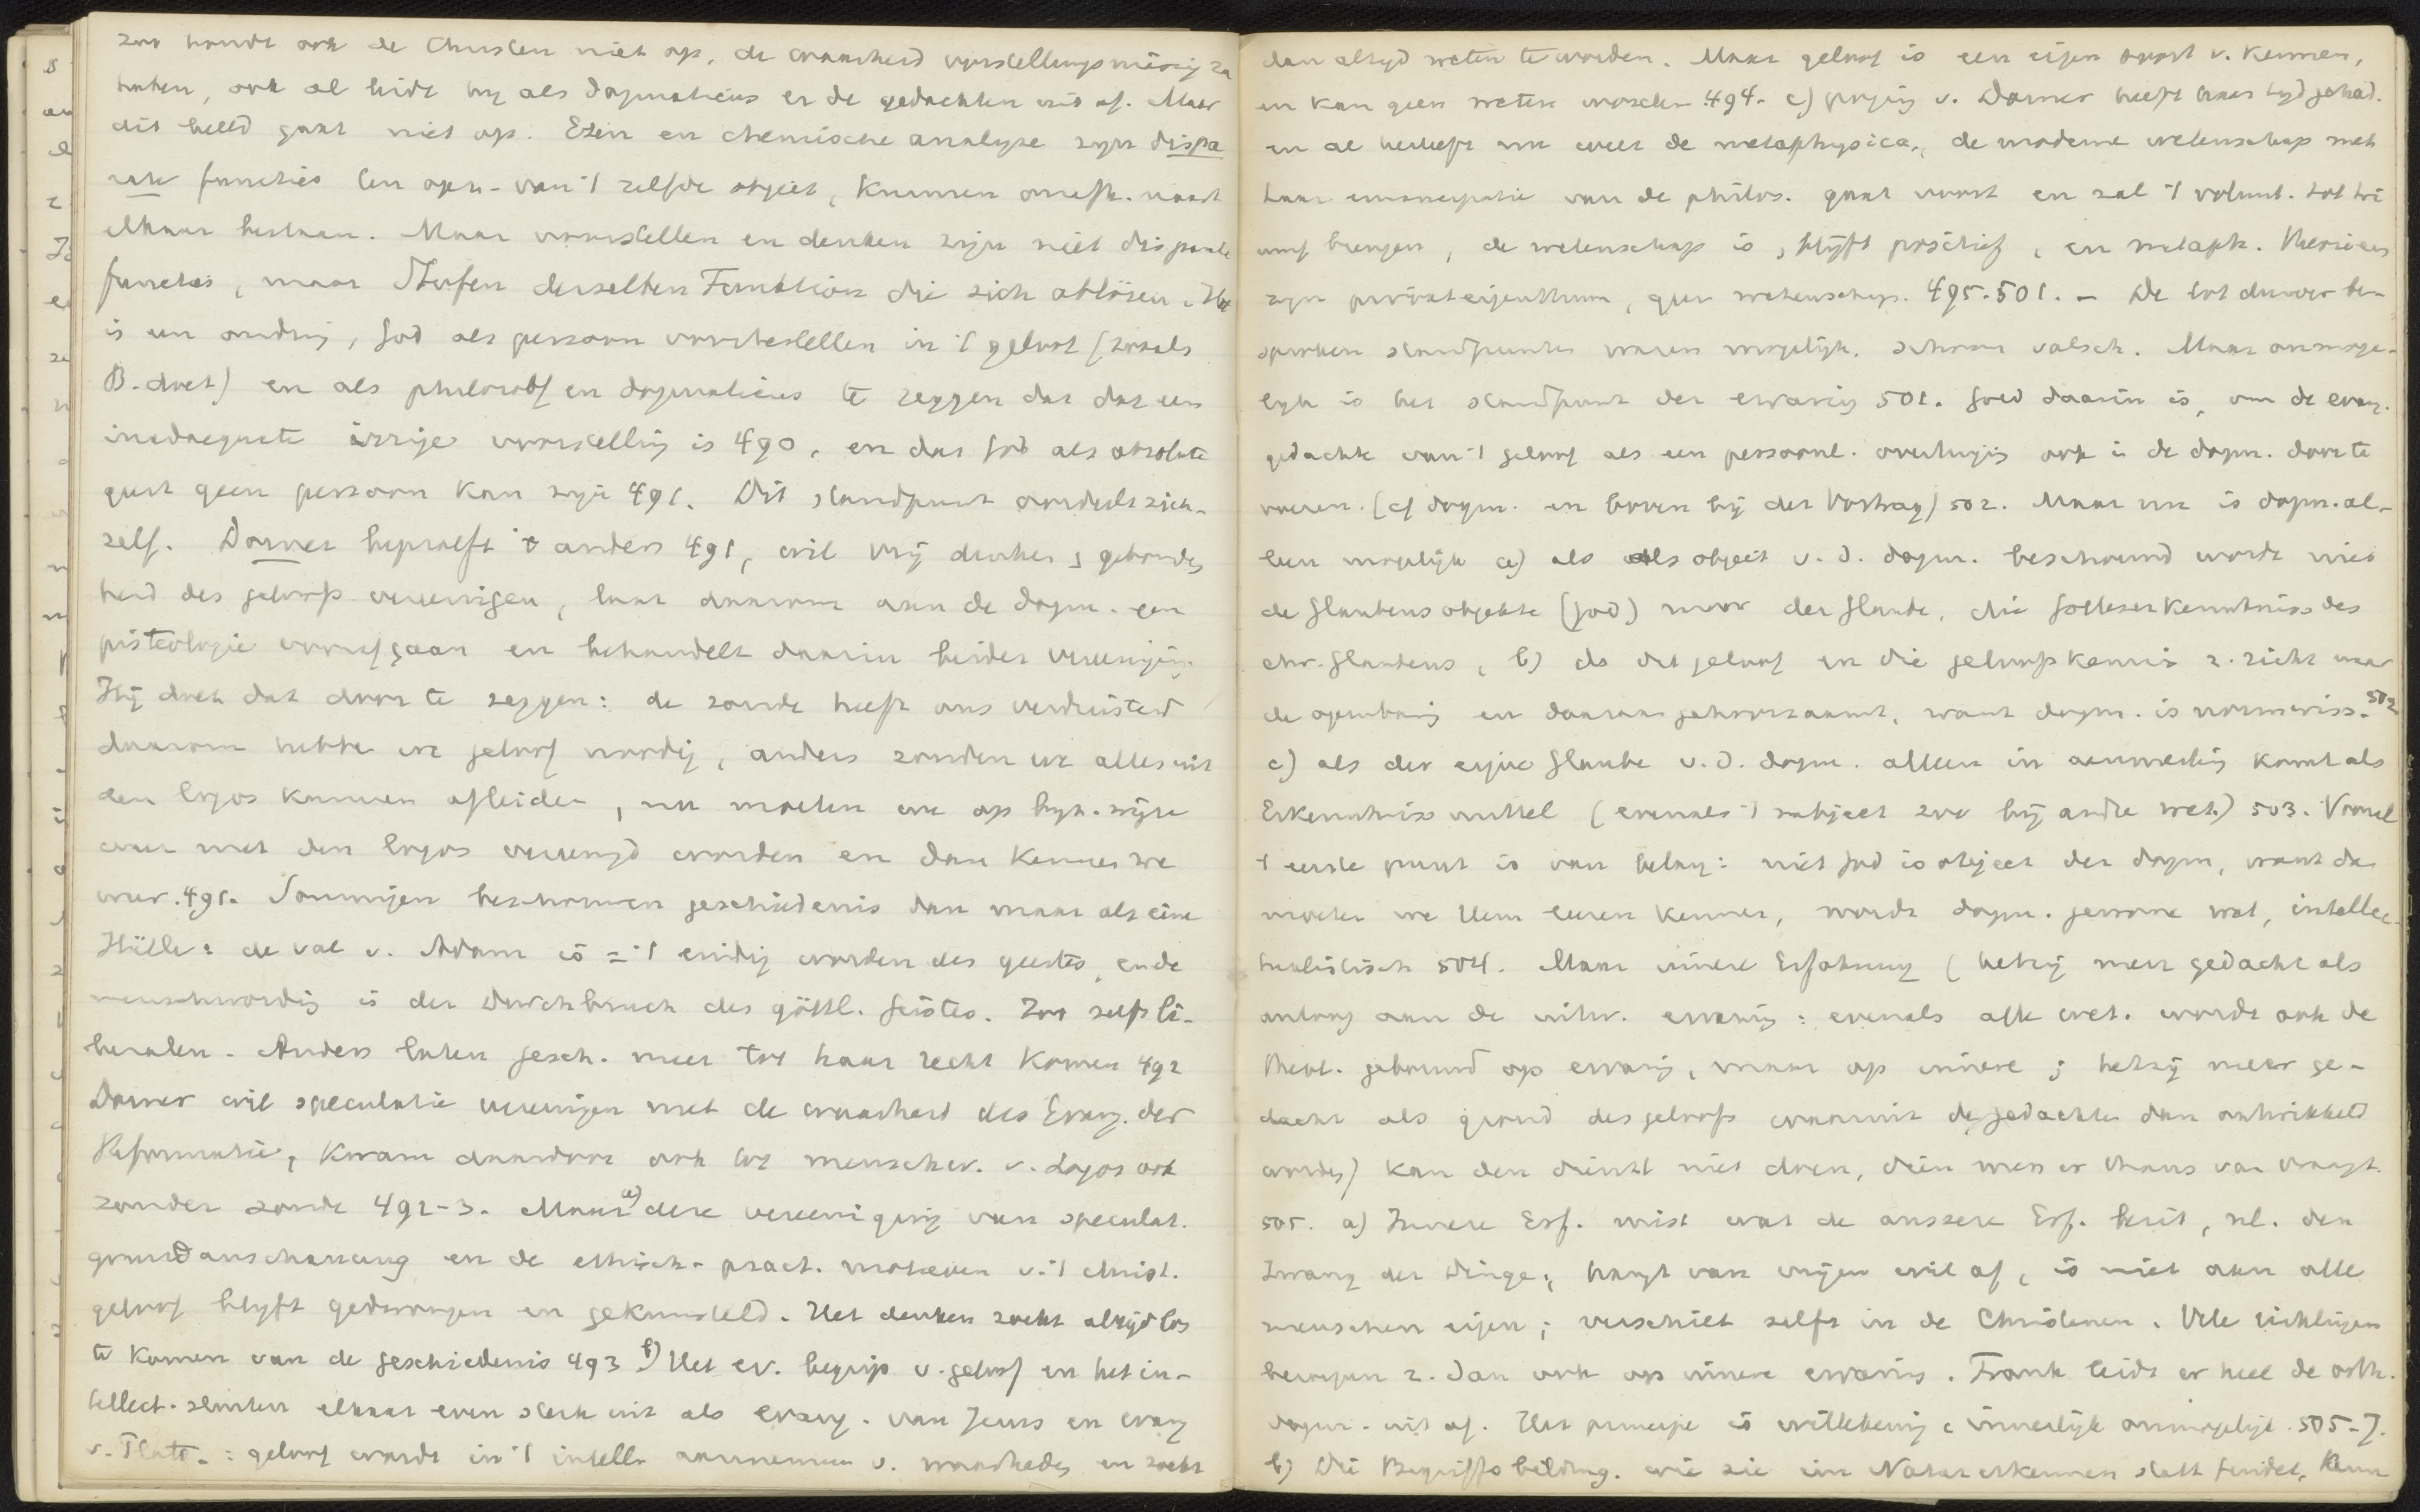 zoo houdt ook de Christen niet op, de waarheid vorstellungsmässig te
hebben, ook al leidt hij als dogmaticus er de gedachten uit af. Maar
dit beeld gaat niet op. Eten en chemische analyse zijn dispa
rate functies ten opz. van 't zelfde object, kunnen onafh. naast
elkaar bestaan. Maar voorstellen en denken zijn niet disparate
functies, maar Stufen derselben Funktion die sich ablösen. Het
is een onding, God als persoon voortestellen in 't geloof (zooals
B. doet) en als philosoof en dogmaticus te zeggen dat dat een
inadaequate irrige voorstelling is 490, en dat God als absolute
geest geen persoon kan zijn 491. Dit standpunt oordeelt zich-
zelf. Dorner beproeft 't anders 491, wil vrij denken & gebonden
heid des geloofs vereenigen, laat daarom aan de dogm. een
pisteologie voorafgaan en behandelt daarin beider vereeniging.
Hij doet dat door te zeggen: de zonde heeft ons verduisterd
daarom hebben we geloof noodig, anders zouden we alles uit
den logos kunnen afleiden, nu moeten we op hyp. wijze
weer met den logos vereenigd worden en dan kennen we
weer. 491. Sommigen beschouwen geschiedenis dan maar als eine
Hülle: de val v. Adam is = 't eindig worden des geestes, en de
menschwording is der Durchbruch des göttl. Geistes. Zoo zelfs li-
beralen. Anders laten gesch. meer tot haar recht komen 492
Dorner wil speculatie vereenigen met de waarheid des Evang. der
Reformatie, kwam daardoor ook tot menschw. v. Logos ook
zonder zonde 492-3. Maar a) deze vereeniging van speculat.
grundanschauung en de ethisch-pract. motieven v. 't christ.
geloof blijft gedwongen en gekunsteld. Het denken zoekt altijd los
te komen van de geschiedenis 493 b) Het ev. begrip v. geloof en het in-
tellect. sluiten elkaar even sterk uit als evang. van Jezus en evang
v. Plato.: geloof wordt in 't intell. aannemen v. waarheden en zoekt
dan altijd weten te worden. Maar geloof is een eigen soort v. kennen,
en kan geen weten worden 494. c) poging v. Dorner heeft haar tijd gehad.
en al herleeft nu weer de metaphysica, de moderne wetenschap met
haar emancipatie van de philos. gaat voort en zal 't volunt. tot tri
umf brengen, de wetenschap is, blijft positief, en metaph. theorieen
zijn privaateigenthum, geen wetensch. 495-501. - De tot dusver be-
sproken standpunten waren mogelijk, schoon valsch. Maar onmoge-
lijk is het standpunt der ervaring 501. Goed daarin is, om de evang.
gedachte van 't geloof als een persoonl. overtuiging ook in de dogm. door te
voeren. (cf dogm. en boven bij der Vortrag) 502. Maar nu is dogm. al-
leen mogelijk a) als als object v. d. dogm. beschouwd wordt niet
de Glaubensobjekte (God) maar der Glaube, die Gotteserkenntniss des
chr. Glaubens, b) als dit geloof en die geloofskennis z. richt naar
de openbaring en daaraan gehoorzaamt, want dogm. is normwiss. 502
c) als der eigne Glaube v. d. dogm. alleen in aanmerking komt als
Erkenntnismittel (evenals 't subject zoo bij andre wet.) 503. Vooral
't eerste punt is van belang: niet God is object der dogm, want dan
moeten we Hem eerst kennen, wordt dogm. gewone wet, intellec-
tualistisch 504. Maar innere Erfahrung (hetzij meer gedacht als
analoog aan de uitw. ervaring: evenals alle wet. wordt ook de
theol. gebouwd op ervaring, maar op innere; hetzij meer ge-
dacht als grond des geloofs waaruit de gedachten dan ontwikkeld
worden) kan den dienst niet doen, dien men er thans van vraagt
505. a) Innere Erf. mist wat de äussere Erf. bezit, nl. den
Zwang der Dinge, hangt van vrijen wil af, is niet aan alle
menschen eigen; verschilt zelfs in de Christenen. Vele richtingen
beroepen z. dan ook op innere ervaring. Frank leidt er heel de orth.
dogm. uit af. Het principe is willekeurig & innerlijk onmogelijk. 505-7.
b) Die Begriffsbildung, wie sie im Naturerkennen statt findet, kann